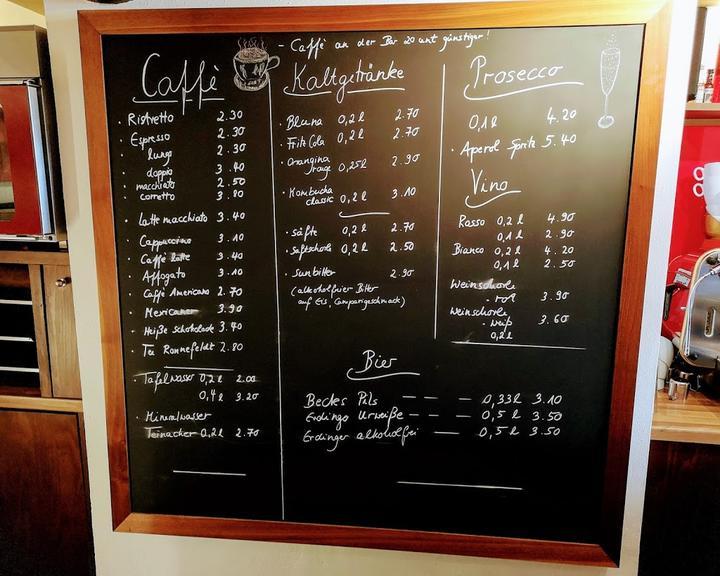 - Caffè an der Bar 20 cent günstiger!
Caffè
· Ristretto 2.30
· Espresso 2.30
lungo 2.30
doppio 3.40
macchiato 2.50
corretto 3.80
· Latte macchiato 3.40
· Cappuccino 3.10
· Caffè latte 3.40
· Affogato 3.10
· Caffè Americano 2.70
· Mexicaner 3.90
· Heiße Schokolade 3.40
· Tee Ronnefeldt 2.80
· Tafelwasser 0,2 l 2.00
0,4 l 3.20
· Mineralwasser
Teinacher 0,2 l 2.70
Kaltgetränke
· Bluna 0,2 l 2.70
· Fritz Cola 0,2 l 2.70
· Orangina
rouge 0,25 l 2.90
· Kombucha
classic 0,2 l 3.10
· Säfte 0,2 l 2.70
· Saftschorle 0,2 l 2.50
· Sanbitter 2.90
(alkoholfreier Bitter
auf Eis, Camparigeschmack)
Prosecco
0,1 l 4.20
· Aperol Spritz 5.40
Vino
Rosso 0,2 l 4.90
0,1 l 2.90
Bianco 0,2 l 4.20
0,1 l 2.50
Weinschorle
- rot 3.90
Weinschorle
- weiß 3.60
0,2 l
Bier
Becks Pils — — — 0,33 l 3.10
Erdinger Urweiße — — 0,5 l 3.50
Erdinger alkoholfrei — 0,5 l 3.50